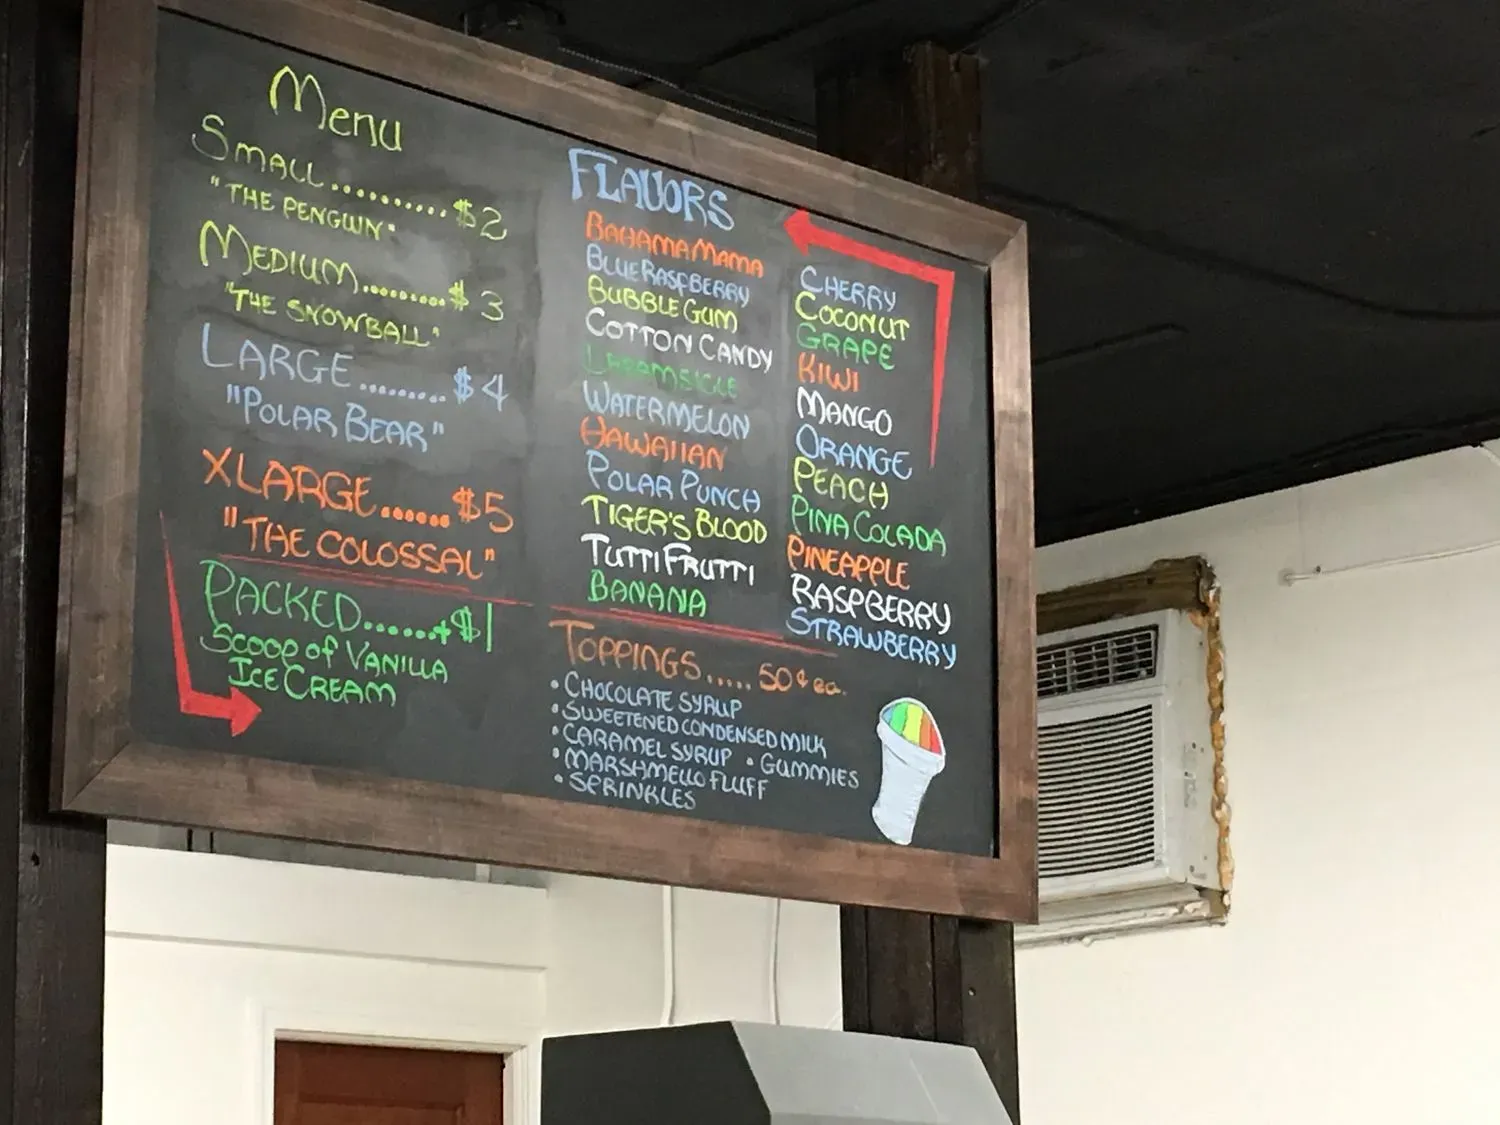 Menu
SMALL..........$2
"THE PENGUIN"
MEDIUM.........$3
"THE SNOWBALL"
LARGE.........$4
"POLAR BEAR"
XLARGE......$5
"THE COLOSSAL"
PACKED......+$1
SCOOP OF VANILLA
ICE CREAM
FLAVORS
BAHAMA MAMA
BLUE RASPBERRY
BUBBLE GUM
COTTON CANDY
WATERMELON
HAWAIIAN
POLAR PUNCH
TIGER'S BLOOD
TUTTI FRUTTI
BANANA
CHERRY
COCONUT
GRAPE
KIWI
MANGO
ORANGE
PEACH
PINA COLADA
PINEAPPLE
RASPBERRY
STRAWBERRY
TOPPINGS..... 50¢ ea.
• CHOCOLATE SYRUP
• SWEETENED CONDENSED MILK
• CARAMEL SYRUP • GUMMIES
• MARSHMELLO FLUFF
• SPRINKLES